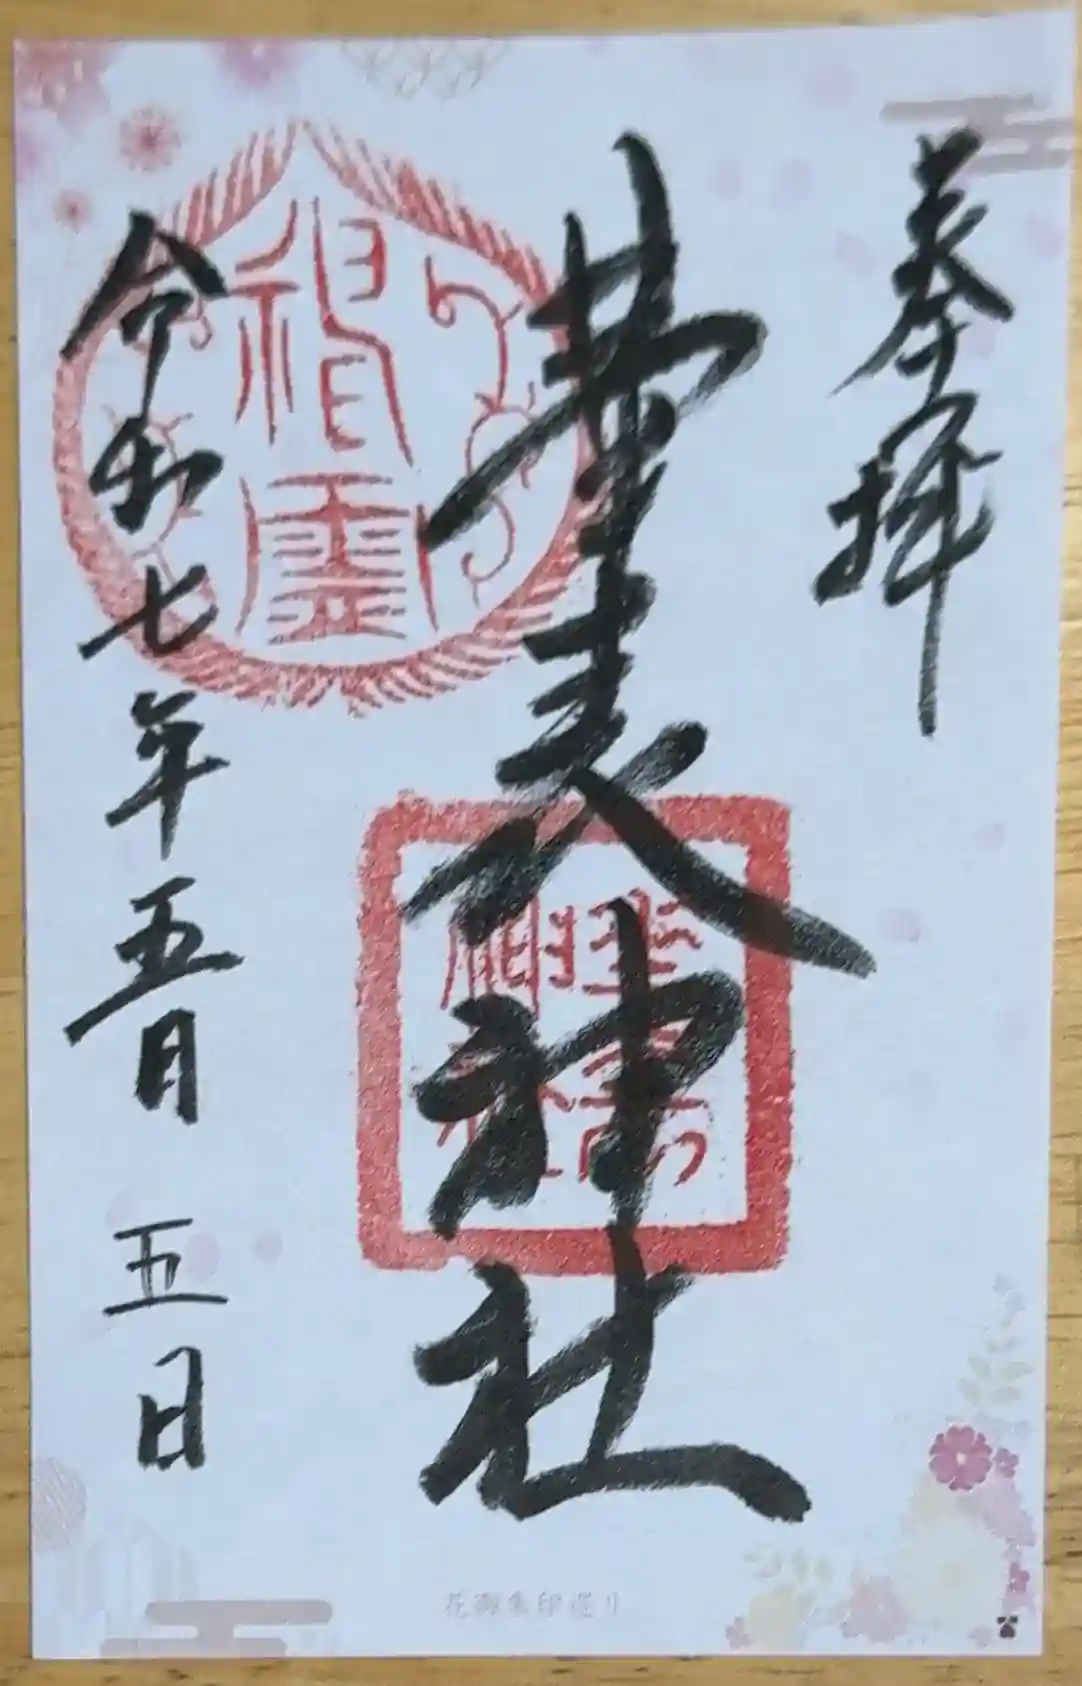 奉拝
華表神社
令和七年五月五日
花御朱印巡り